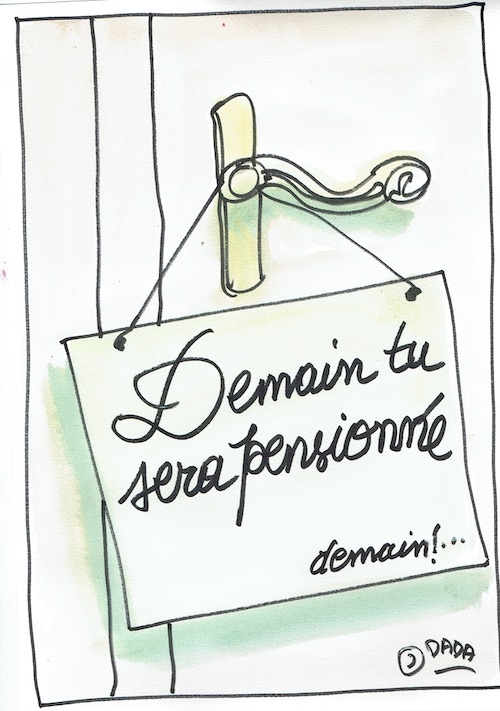 Demain tu
sera pensionné
demain!...
DADA